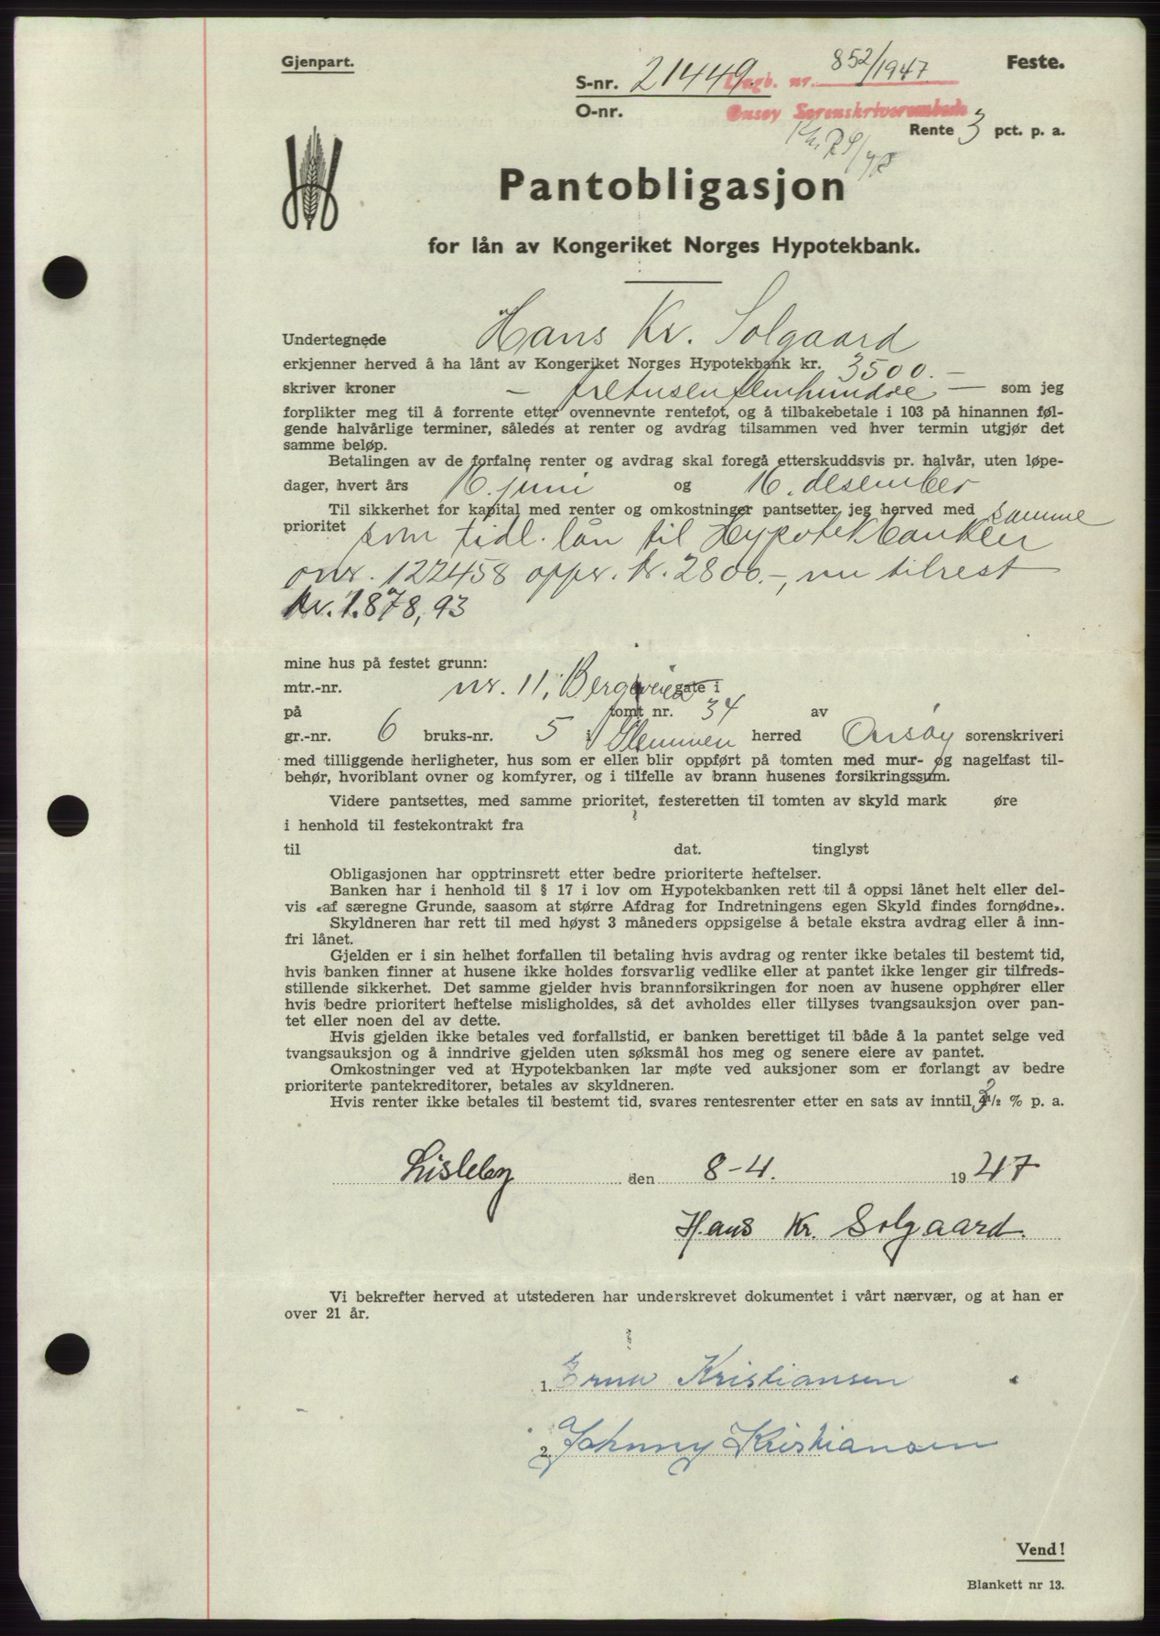 Gjenpart.
S-nr. 21449. Dagb. nr. 852/1947 Feste.
O-nr. Onsøy Sorenskriverembede
Rente 3 pct. p. a.
Pantobligasjon
for lån av Kongeriket Norges Hypotekbank.
Undertegnede Hans Kr. Solgaard
erkjenner herved å ha lånt av Kongeriket Norges Hypotekbank kr. 3500.—
skriver kroner — tretusenfemhundre — som jeg
forplikter meg til å forrente etter ovennevnte rentefot, og å tilbakebetale i 103 på hinannen føl-
gende halvårlige terminer, således at renter og avdrag tilsammen ved hver termin utgjør det
samme beløp.
Betalingen av de forfalne renter og avdrag skal foregå etterskuddsvis pr. halvår, uten løpe-
dager, hvert års 16. juni og 16. desember
Til sikkerhet for kapital med renter og omkostninger pantsetter jeg herved med samme
prioritet som tidl. lån til Hypotekbanken
onr. 122458 oppr. kr. 2800.-, nu tilrest
kr. 1.878,93
mine hus på festet grunn:
mtr.-nr. nr. 11, Bergveien gate i
på tomt nr. 34 av
gr.-nr. 6 bruks-nr. 5 i Glemmen herred Onsøy sorenskriveri
med tilliggende herligheter, hus som er eller blir oppført på tomten med mur- og nagelfast til-
behør, hvoriblant ovner og komfyrer, og i tilfelle av brann husenes forsikringssum.
Videre pantsettes, med samme prioritet, festeretten til tomten av skyld mark øre
i henhold til festekontrakt fra
til dat. tinglyst
Obligasjonen har opptrinsrett etter bedre prioriterte heftelser.
Banken har i henhold til § 17 i lov om Hypotekbanken rett til å oppsi lånet helt eller del-
vis «af særegne Grunde, saasom at større Afdrag for Indretningens egen Skyld findes fornødne».
Skyldneren har rett til med høyst 3 måneders oppsigelse å betale ekstra avdrag eller å inn-
fri lånet.
Gjelden er i sin helhet forfallen til betaling hvis avdrag og renter ikke betales til bestemt tid,
hvis banken finner at husene ikke holdes forsvarlig vedlike eller at pantet ikke lenger gir tilfreds-
stillende sikkerhet. Det samme gjelder hvis brannforsikringen for noen av husene opphører eller
hvis bedre prioritert heftelse misligholdes, så det avholdes eller tillyses tvangsauksjon over pan-
tet eller noen del av dette.
Hvis gjelden ikke betales ved forfallstid, er banken berettiget til både å la pantet selge ved
tvangsauksjon og å inndrive gjelden uten søksmål hos meg og senere eiere av pantet.
Omkostninger ved at Hypotekbanken lar møte ved auksjoner som er forlangt av bedre
prioriterte pantekreditorer, betales av skyldneren.
Hvis renter ikke betales til bestemt tid, svares rentesrenter etter en sats av inntil 3 1/2 % p. a.
Lisleby den 8-4. 1947
Hans Kr. Solgaard.
Vi bekrefter herved at utstederen har underskrevet dokumentet i vårt nærvær, og at han er
over 21 år.
1. Erna Kristiansen
2. Johnny Kristiansen
Vend!
Blankett nr 13.